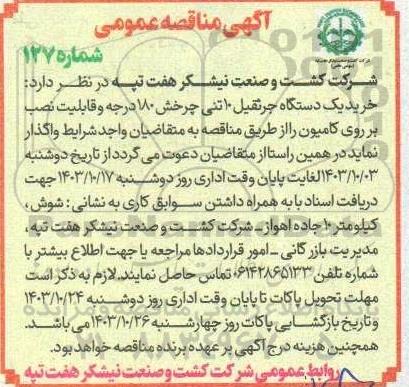 آگهی مناقصه عمومی
شماره ۱۲۷
شرکت کشت و صنعت نیشکر هفت تپه در نظر دارد:
خرید یک دستگاه جرثقیل ۱۰ تنی چرخش ۱۸۰ درجه و قابلیت نصب
بر روی کامیون را از طریق مناقصه به متقاضیان واجد شرایط واگذار
نماید در همین راستا از متقاضیان دعوت می گردد از تاریخ دوشنبه
۱۴۰۳/۱۰/۰۳ لغایت پایان وقت اداری روز دوشنبه ۱۴۰۳/۱۰/۱۷ جهت
دریافت اسناد با به همراه داشتن سوابق کاری به نشانی : شوش ،
کیلومتر ۱۰ جاده اهواز ـ شرکت کشت و صنعت نیشکر هفت تپه،
مدیریت بازرگانی ـ امور قراردادها مراجعه یا جهت اطلاع بیشتر با
شماره تلفن ۰۶۱۴۲۸۶۵۱۳۳ تماس حاصل نمایند. لازم به ذکر است
مهلت تحویل پاکات تا پایان وقت اداری روز دوشنبه ۱۴۰۳/۱۰/۲۴
و تاریخ بازگشایی پاکات روز چهارشنبه ۱۴۰۳/۱۰/۲۶ می باشد.
همچنین هزینه درج آگهی بر عهده برنده مناقصه خواهد بود.
روابط عمومی شرکت کشت و صنعت نیشکر هفت تپه